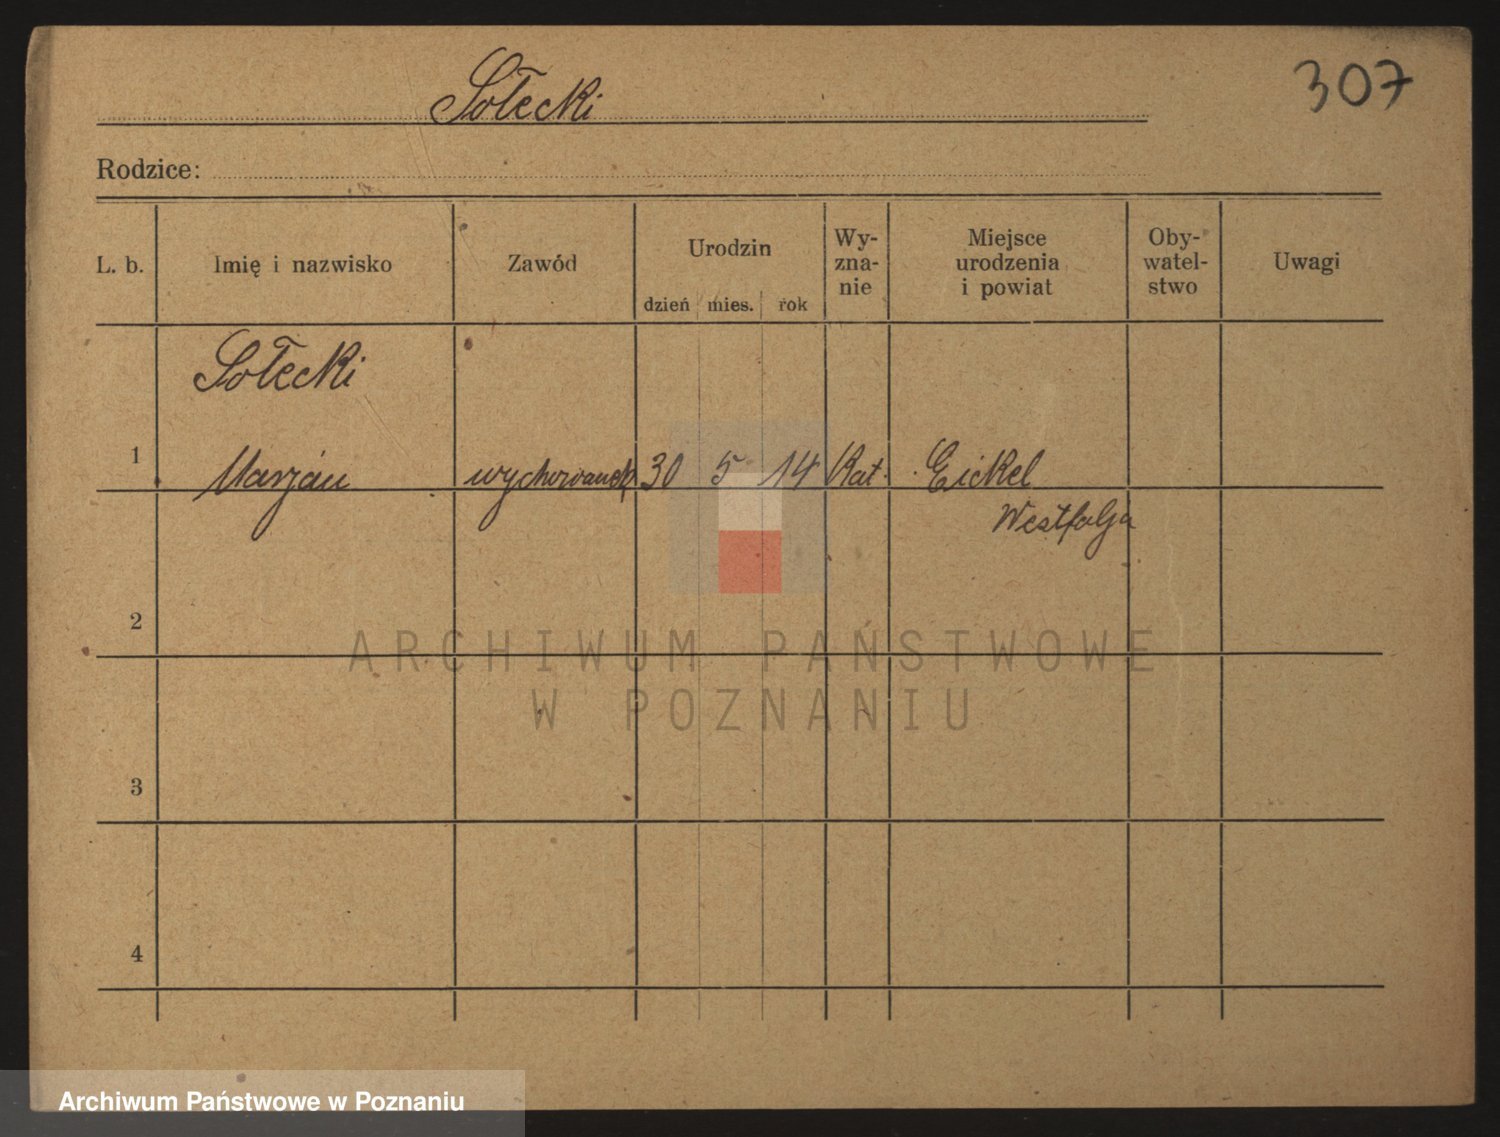 Sołecki
307
Rodzice:
L. b.
Imię i nazwisko
Zawód
Urodzin
dzień mies. rok
Wy-
zna-
nie
Miejsce
urodzenia
i powiat
Oby-
watel-
stwo
Uwagi
Sołecki
1 Marjan wychowanek 30 5 14 Kat. Eickel
Westfalja
2
ARCHIWUM PAŃSTWOWE
W POZNANIU
3
4
Archiwum Państwowe w Poznaniu